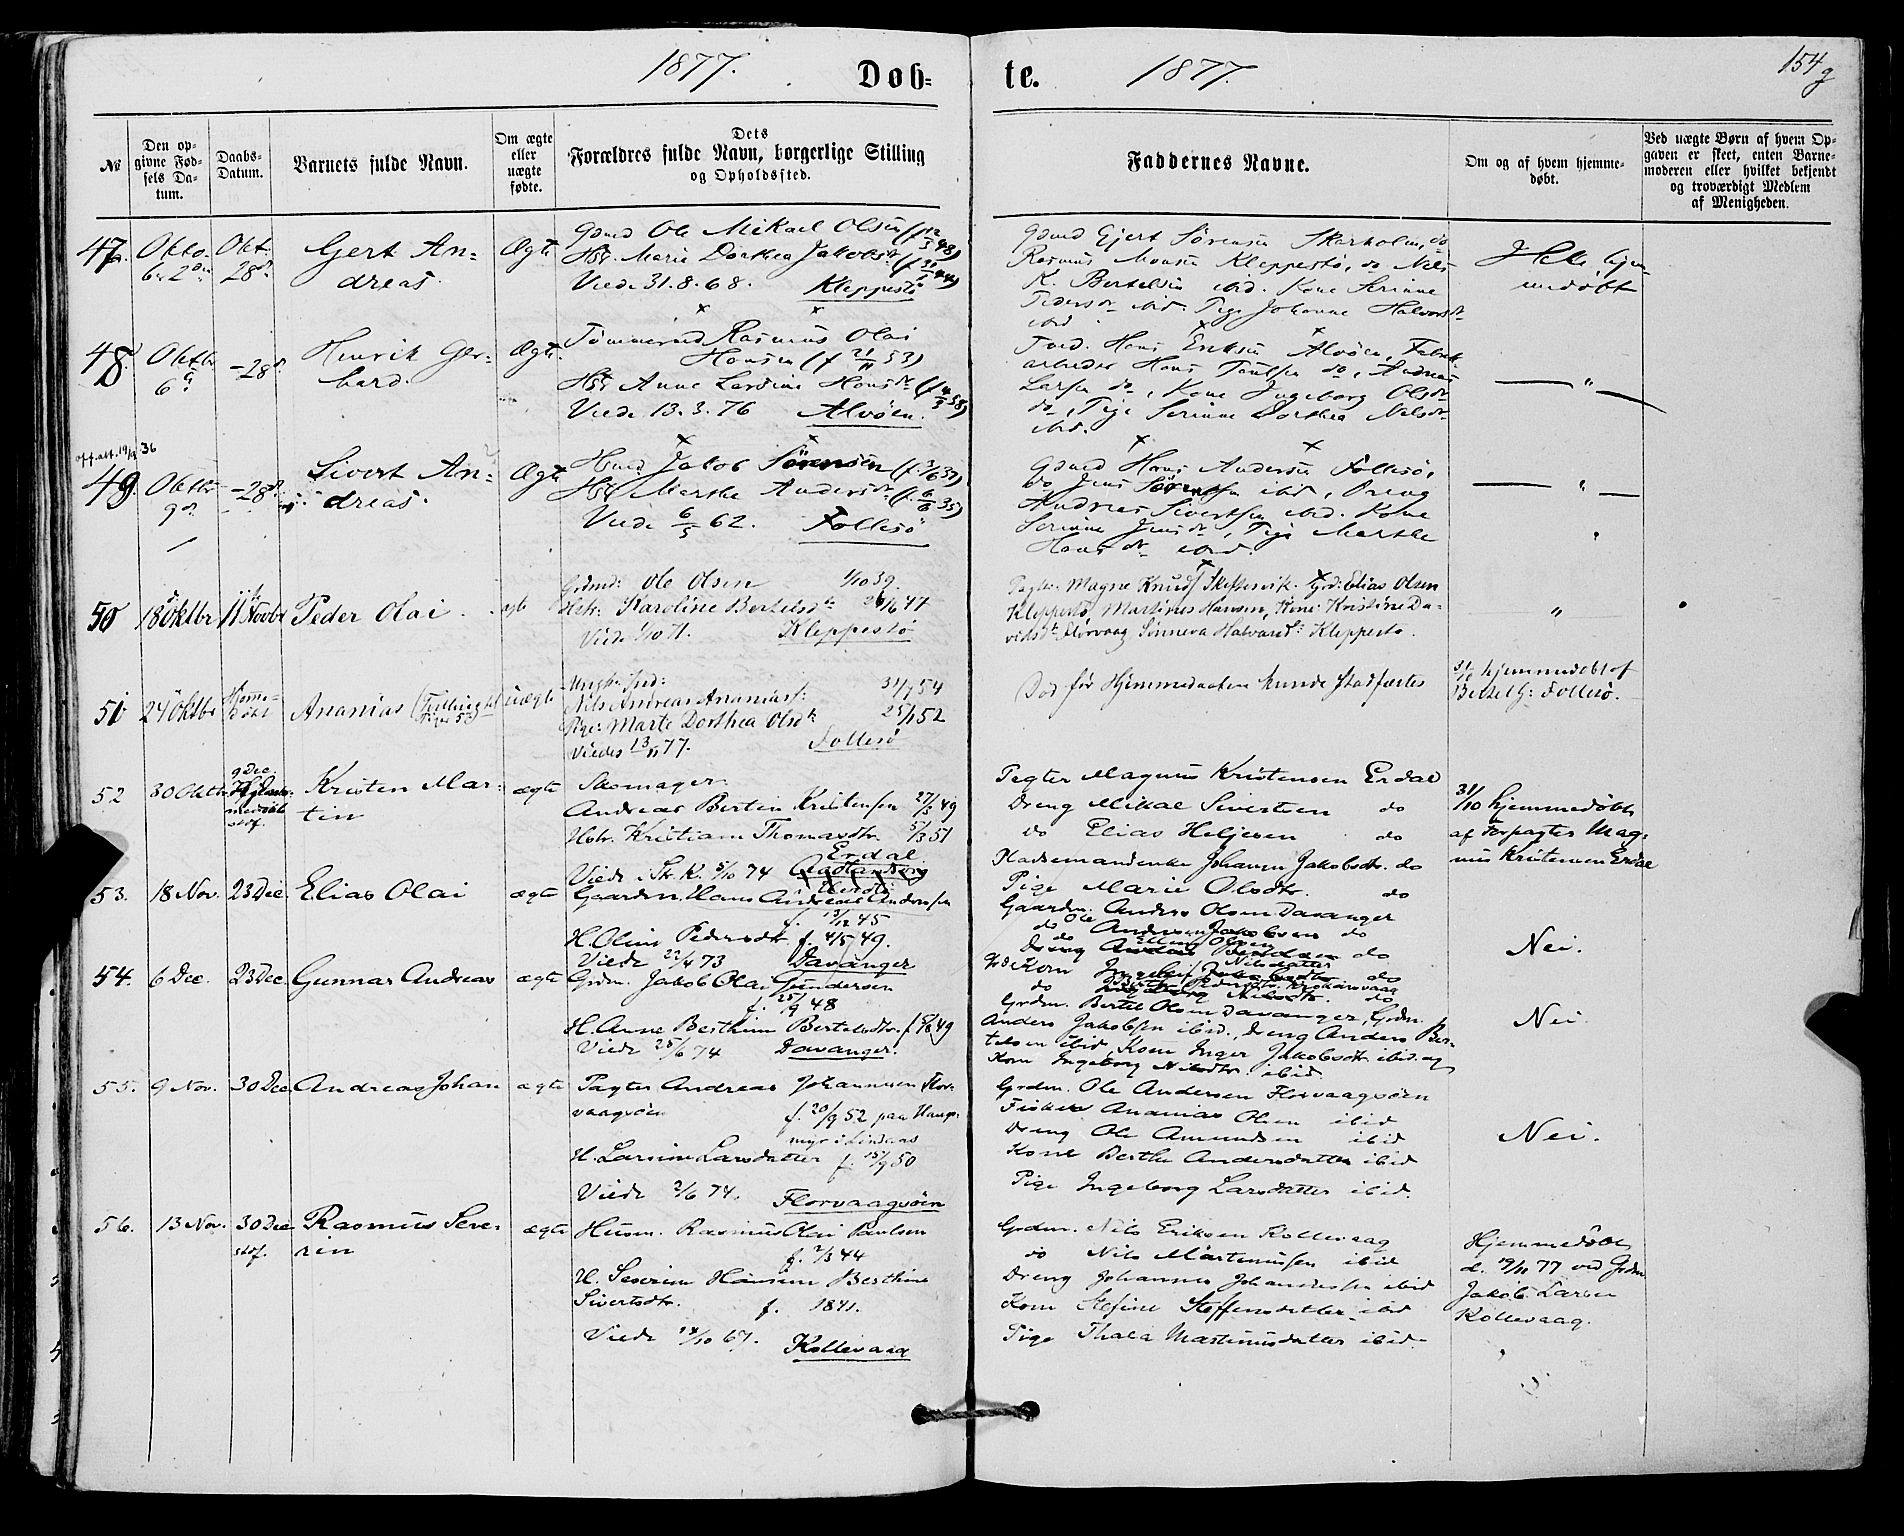 1877. Døb-
te. 1877. 154
№
Den op-
givne Fød-
sels Da-
tum.
Daabs-
Datum.
Barnets fulde Navn.
Om ægte
eller
uægte
fødte.
Dets
Forældres fulde Navn, borgerlige Stilling
og Opholdssted.
Faddernes Navne.
Om og af hvem hjemme-
døbt.
Ved uægte Børn af hvem Op-
gaven er skeet, enten Barne-
moderen eller hvilket bekjendt
og troværdigt Medlem
af Menigheden.
47.
Okto
Okt.
28
Gert An-
dreas.
Ægte
Gdmd Ole Mikael Olsen
Marie Dorthea
Viede 31.8.68. Kleppestø
Gdmd Gjert Sørensen Skarholm,
Rasmus Monsen Kleppestø, do Nils
K. Bertelsen ibid. Kone Serine
Pedersdr ibid. Pige Johanne Halvorsdr
ibid.
48.
Oktbr
6
-28
Henrik Ger-
hard.
Ægte.
Rasmus Olai
Hansen (f 21/11 53)
Anne Lardine Hansdr
Viede 13.3.76 Alvøen.
Hans Eriksen Alvøen, Fabrik-
arbeider Hans do, Andreas
Larsen do, Kone Ingeborg Olsdr
do, Pige Serine Dorthea Nilsdr
ibid.
— " —
49.
Oktbr
9
-28
Sivert An-
dreas.
Ægte
Jakob Sørensen
Marthe Andersdr
Viede 6/5 62. Follesø
Gdmd Hans Andersen Follesø,
do Jens ibid, Dreng
Andreas Sivertsen ibid. Kone
Serine Jensdr, Pige Marthe
Hansdr ibid.
— " —
50
18 Oktbr
11 Novbr
Peder Olai.
ægte
Grdmd: Ole Olsen 1/10 39.
Hstr: Karoline Bertelsdtr 47
Viede Kleppestø
Pagter Magne Knuds Skiftesvik. Grd: Elias Olsen
Kleppestø, Martines Hansen, Kone: Kristine Da-
vidsdtr Florvaag Sønneva Halvorsd: Kleppestø.
"
51
24 Oktbr
Hjemme-
døbt
Ananias (
uægte
Nils Andreas Ananias: 31/7 54
Pige: Marte Dorthea Olsdtr 25/1 52
Viedes 13/11 77. Follesø
Død før Hjemmedaaben kunde stadfæstes
hjemmedøbt af
Follesø.
52
30 Oktbr
9 Dec
stdf.
Kristen Mar-
tin
ægte
Skomager
Andreas Bertin Kristensen 27/3 49
Hstr. Kristiane Thomasdtr. 5/3 51
Erdal
Viede i Str. K. 5/10 74
Pagter Magnus Kristensen Erdal
Dreng Mikal Sivertsen do
do Elias Heljesen do
Pladsemandenke Johanne Jakobsdtr. do
Pige Marie Olsdtr. do
31/10 hjemmedøbt
af Forpagter Mag-
nus Kristensen Erdal
53.
18 Nov.
23 Dec.
Elias Olai
ægte
Gaardm. Hans Andreas Andersen
f. 13/12 45
H. Oline Pedersdtr f. 4/5 49.
Viede 22/4 73 Davanger
Gaardm. Anders Olsen Davanger
do Ole Andersen do
Dreng do
Kone do
do do
Nei.
54.
6 Dec.
23 Dec.
Gunnar Andreas
ægte
Grdm. Jakob Olai Gundersen
f. 25/9 48
H. Anne Berthine Bertelsdtr. f 49
Viede 25/6 74 Davanger.
Grdm. Bertel Olsen Davanger, Grdm.
Anders Jakobsen ibid., Dreng Anders Ber-
telsen ibid, Kone Inger Jakobsdtr. ibid. og
Kone Ingeborg Nilsdtr. ibid.
Nei.
55.
9 Nov.
30 Dec.
Andreas Johan
ægte
Pagter Andreas Johannesen Flor-
vaagsøen
f. 20/9 52 paa Haugs-
myr i Lindaas
H. Larsine Larsdatter f. 15/9 50
Viede 2/6 74. Florvaagsøen
Grdm. Ole Andersen Florvaagsøen
Fisker Ananias Olsen ibid
Dreng Ole Amundsen ibid
Kone Berthe Andersdatter ibid
Pige Ingeborg Larsdatter ibid.
Nei.
56.
13 Nov.
30 Dec
stdf.
Rasmus Seve-
rin
ægte
Husm. Rasmus Olai Paulsen
f. 2/3 44
H. Severine Hansine Berthine
Sivertsdtr. f. 1841.
Viede 14/10 67. Kollevaag
Grdm. Nils Eriksen Kollevaag
do Nils Martinussen ibid
Dreng Johannes Johannessen ibid
Kone Stefine Steffensdatter ibid
Pige Thala Martinusdatter ibid.
Hjemmedøbt
d. 19/11 77 ved Grdm.
Jakob Larsen
Kollevaag.